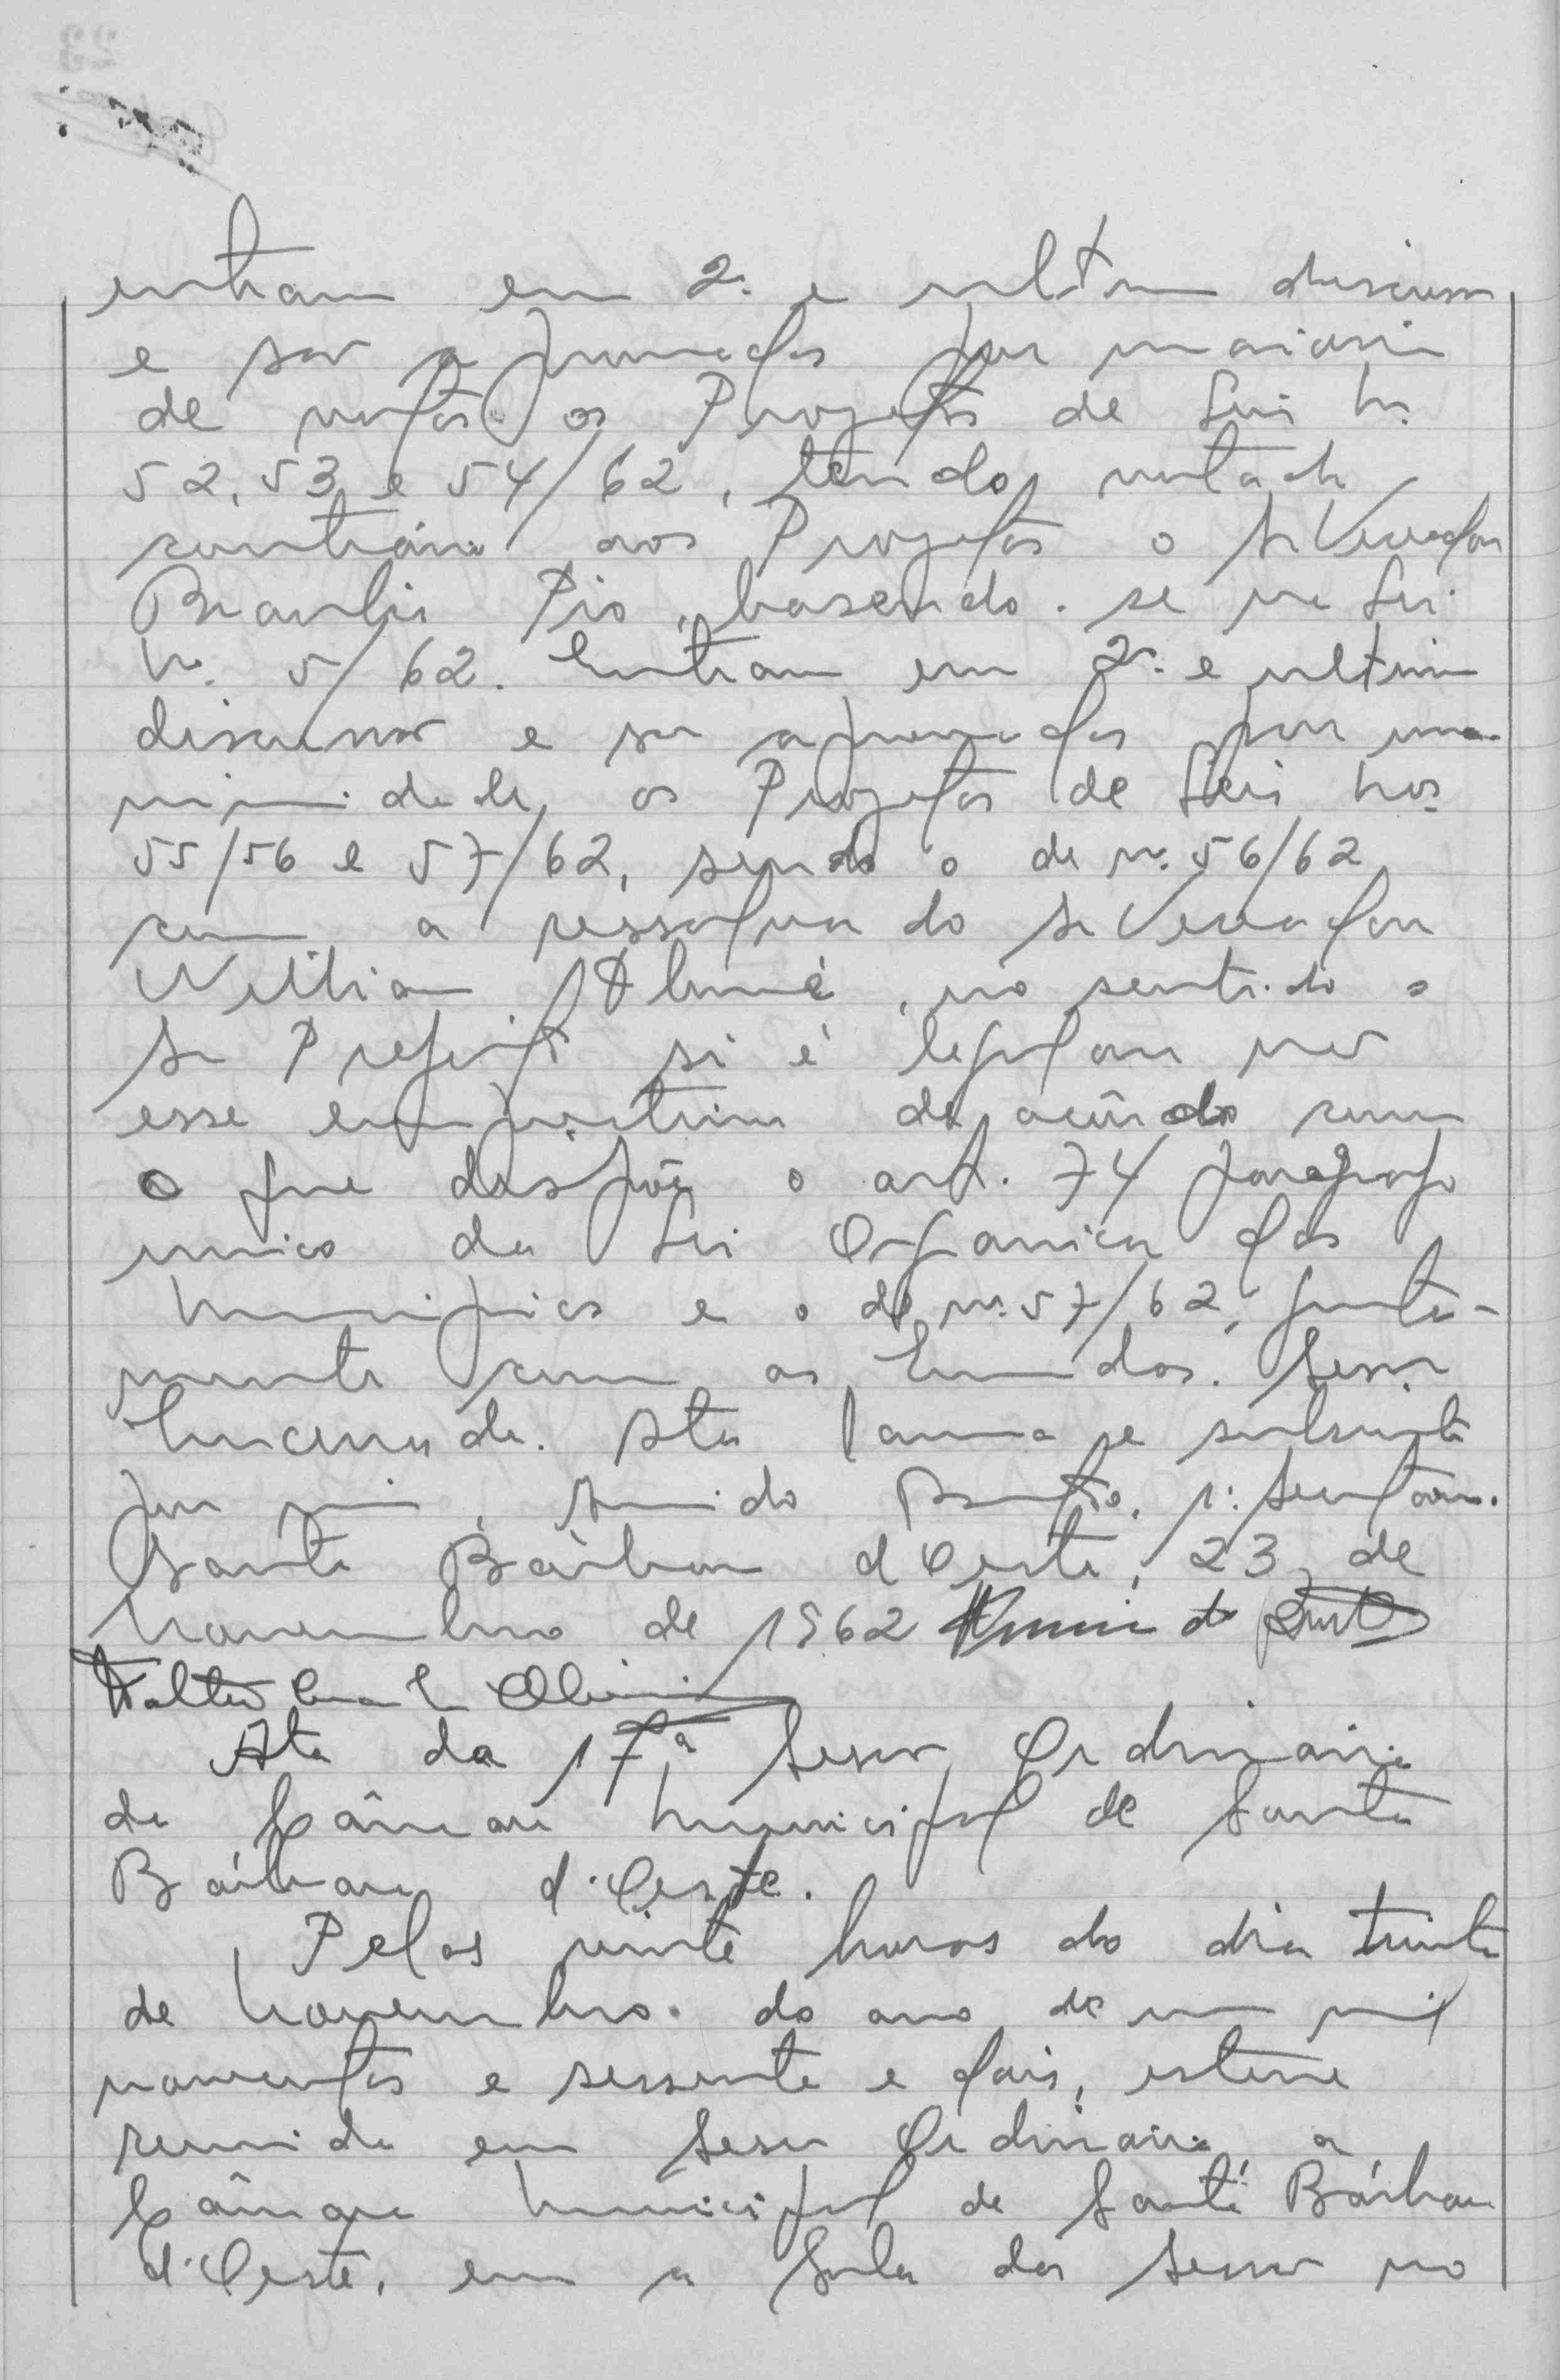 entram em 2ª e ultima discussão
e são aprovados por maioria
de votos os Projetos de Leis nº
52, 53 e 54/62, tendo votado
contrário aos Projetos o Sr Vereador
Braulio Pio, baseando-se na Lei
nº 5/62. Entram em 2ª e ultima
discussão e são aprovados por una-
nimidade, os Projetos de Leis nos
55/56 e 57/62, sendo o de nº 56/62
com a ressalva do Sr Vereador
Willian, no sentido o
Sr Prefeito si é legal ou não
esse emprestimo de acôrdo com
o que dispõe o art. 74 paragrafo
unico da Lei Organica dos
Municipios e o de nº 57/62, junta-
mente com as Emendas. Sessão
Encerrada. Ata lavrada e subscrita
por mim, 1º Secretario.
Santa Bárbara d'Oeste, 23 de
Novembro de 1962
Walter
Ata da 17ª Sessão Ordinária
da Câmara Municipal de Santa
Bárbara d'Oeste.
Pelas vinte horas do dia trinta
de Novembro do ano de um mil
novecentos e sessenta e dois, esteve
reunida em Sessão Ordinária a
Câmara Municipal de Santa Bárbara
d'Oeste, em a Sala das Sessões no